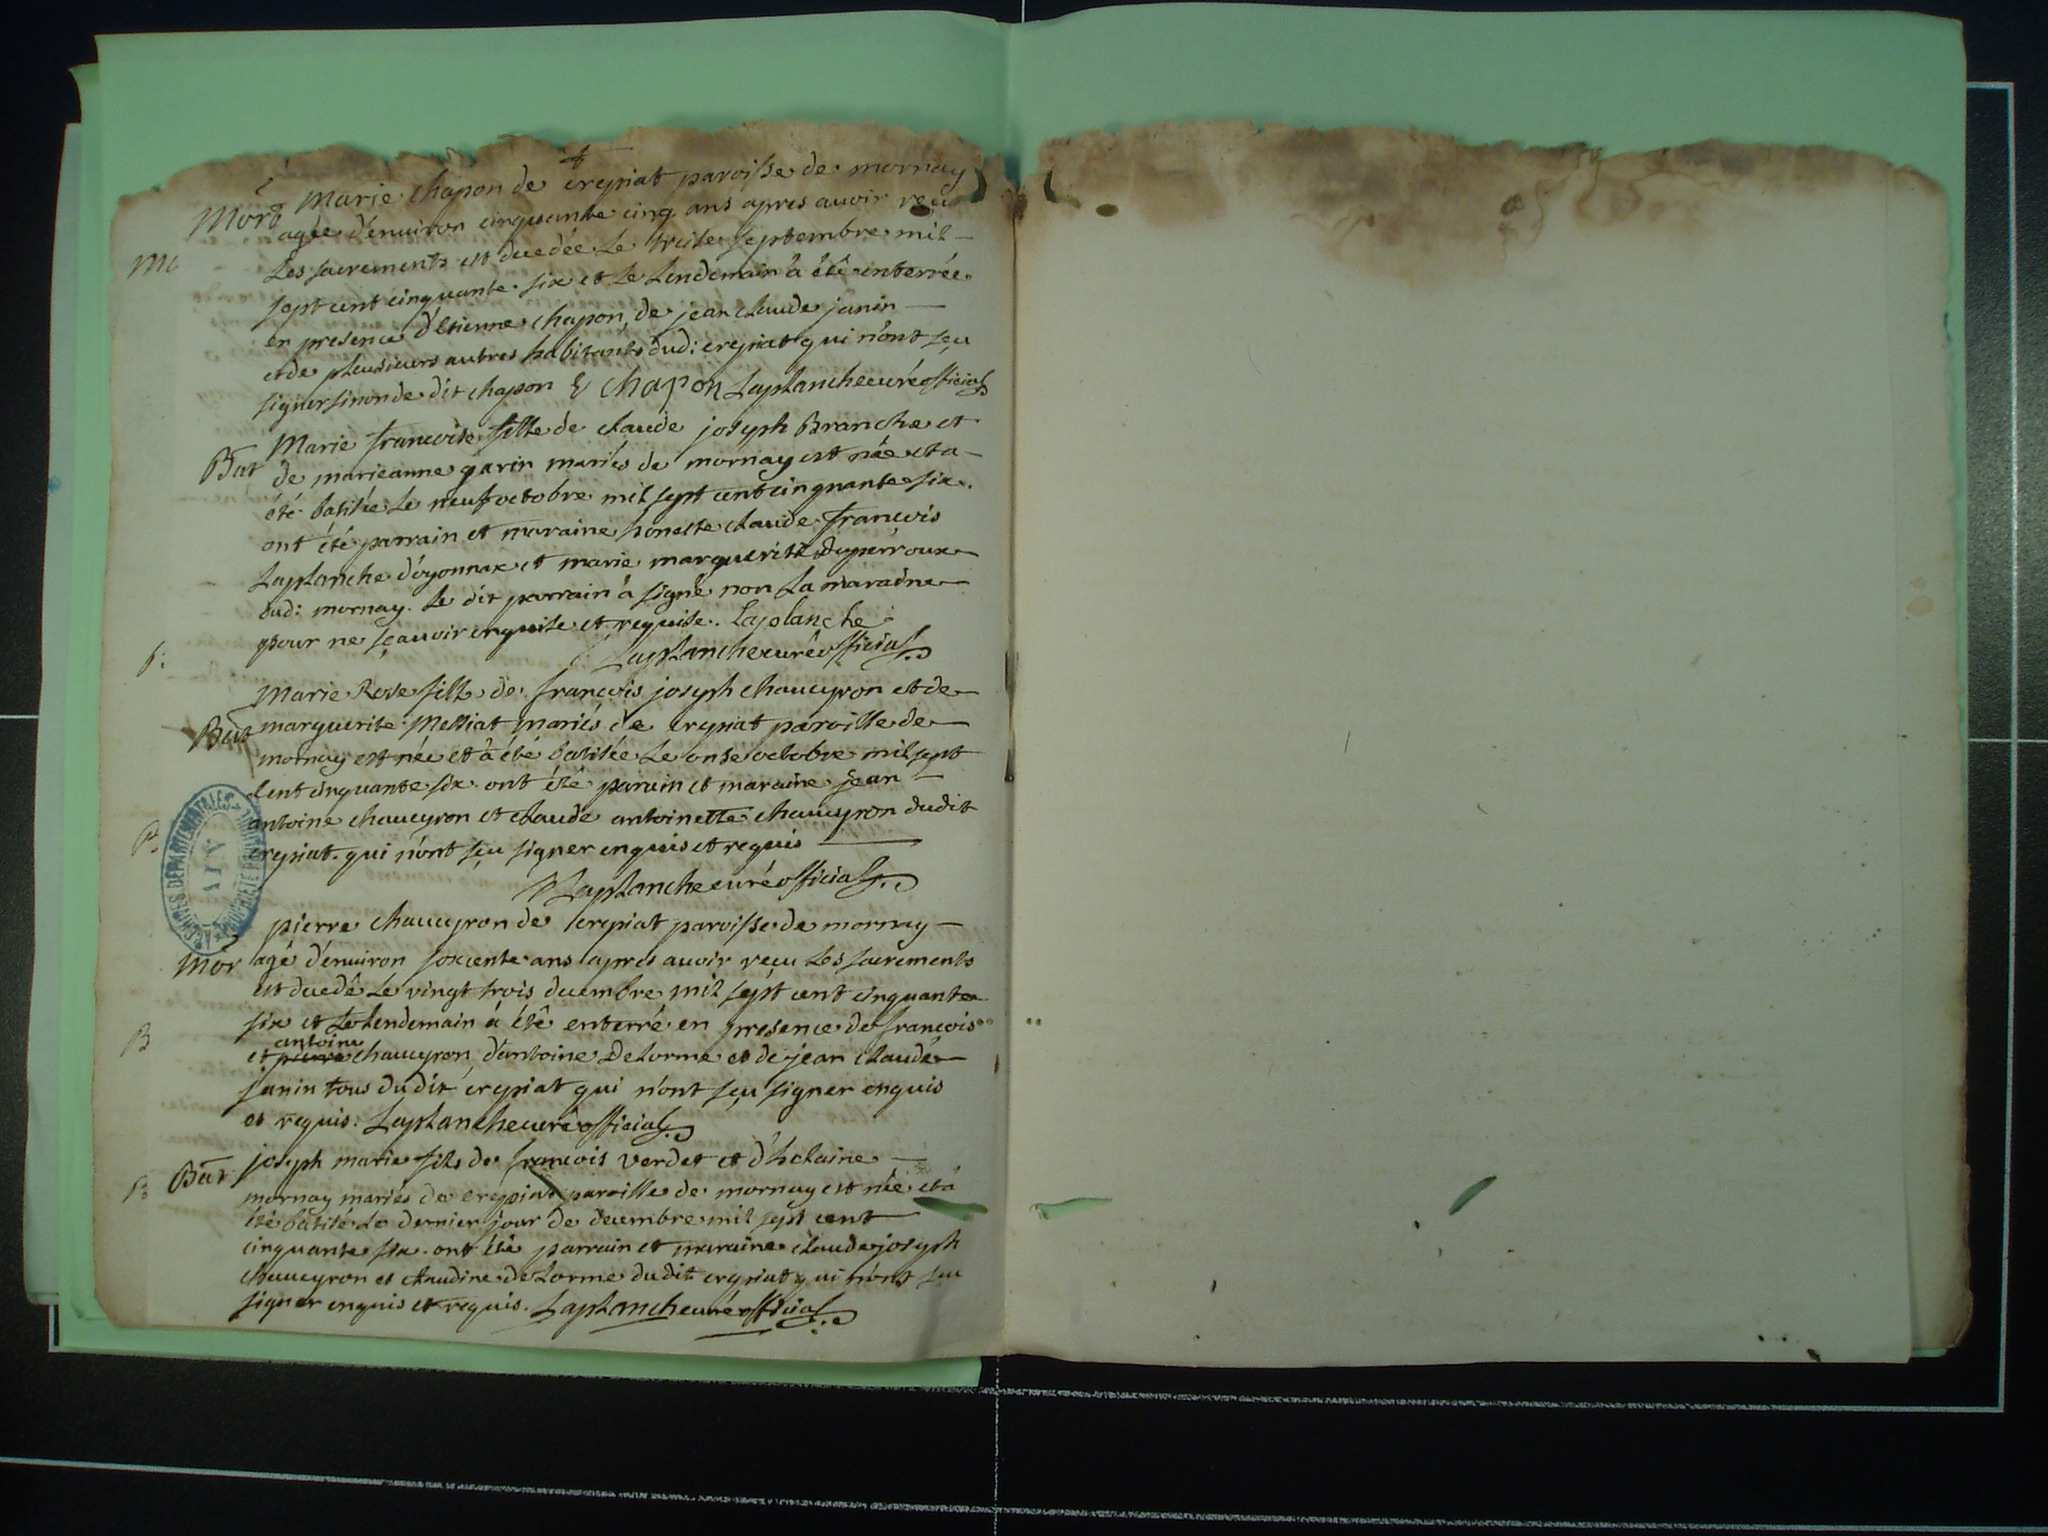 Mort Marie Chapon de crepiat paroisse de mornay
agée d'enuiron cinquante cinq ans apres auoir reçu
Les sacrements est decedée Le treise septembre mil
sept cent cinquante six et Le Lendemain a été enterrée
en presence d'Etienne chapon, de jean claude janin
et de pleusieurs autres habitants dud: crepiat qui n'ont sçu
signer sinon de dit chapon E chapon Laplanche curé official
Bat Marie francoise fille de claude joseph Branche et
de marieanne garin mariés de mornay est née et a
été batisée Le neuf octobre mil sept cent cinquante six.
ont été parrain et maraine honeste claude françois
Laplanche d'oyonnax et marie marguerite duperroux
dud: mornay. Le dit parrain a signé non La maraine
pour ne sçauoir enquise et requise. Laplanche
Laplanche curé official
Marie Rose fille de françois joseph chaueyron et de
Bat marguerite Messiat mariés de crepiat paroisse de
mornay est née et a été batisée Le onse octobre mil sept
cent cinquante six ont été parain et maraine jean
antoine chaueyron et claude antoinette chaueyron dudit
crepiat qui n'ont sçu signer enquis et requis
Laplanche curé official
pierre chaueyron de crepiat paroisse de mornay
Mor agé d'enuiron soixente ans apres auoir reçu Les sacrements
est decedé Le vingt trois decembre mil sept cent cinquante
six et Le lendemain a été enterré en presence de françois
antoine
et pierre chaueyron, d'antoine Delorme et de jean claude
janin tous dudit crepiat qui n'ont sçu signer enquis
et requis. Laplanche curé official
Bat joseph marie fils de françois verdet et d'helaine
mornay mariés de crepiat paroisse de mornay est née et a
été batisé Le dernier jour de decembre mil sept cent
cinquante six. ont été parrain et maraine claude joseph
chaueyron et claudine deLorme dudit crepiat qui n'ont sçu
signer enquis et requis. Laplanche curé official
ARCHIVES DEPARTEMENTALES
AIN